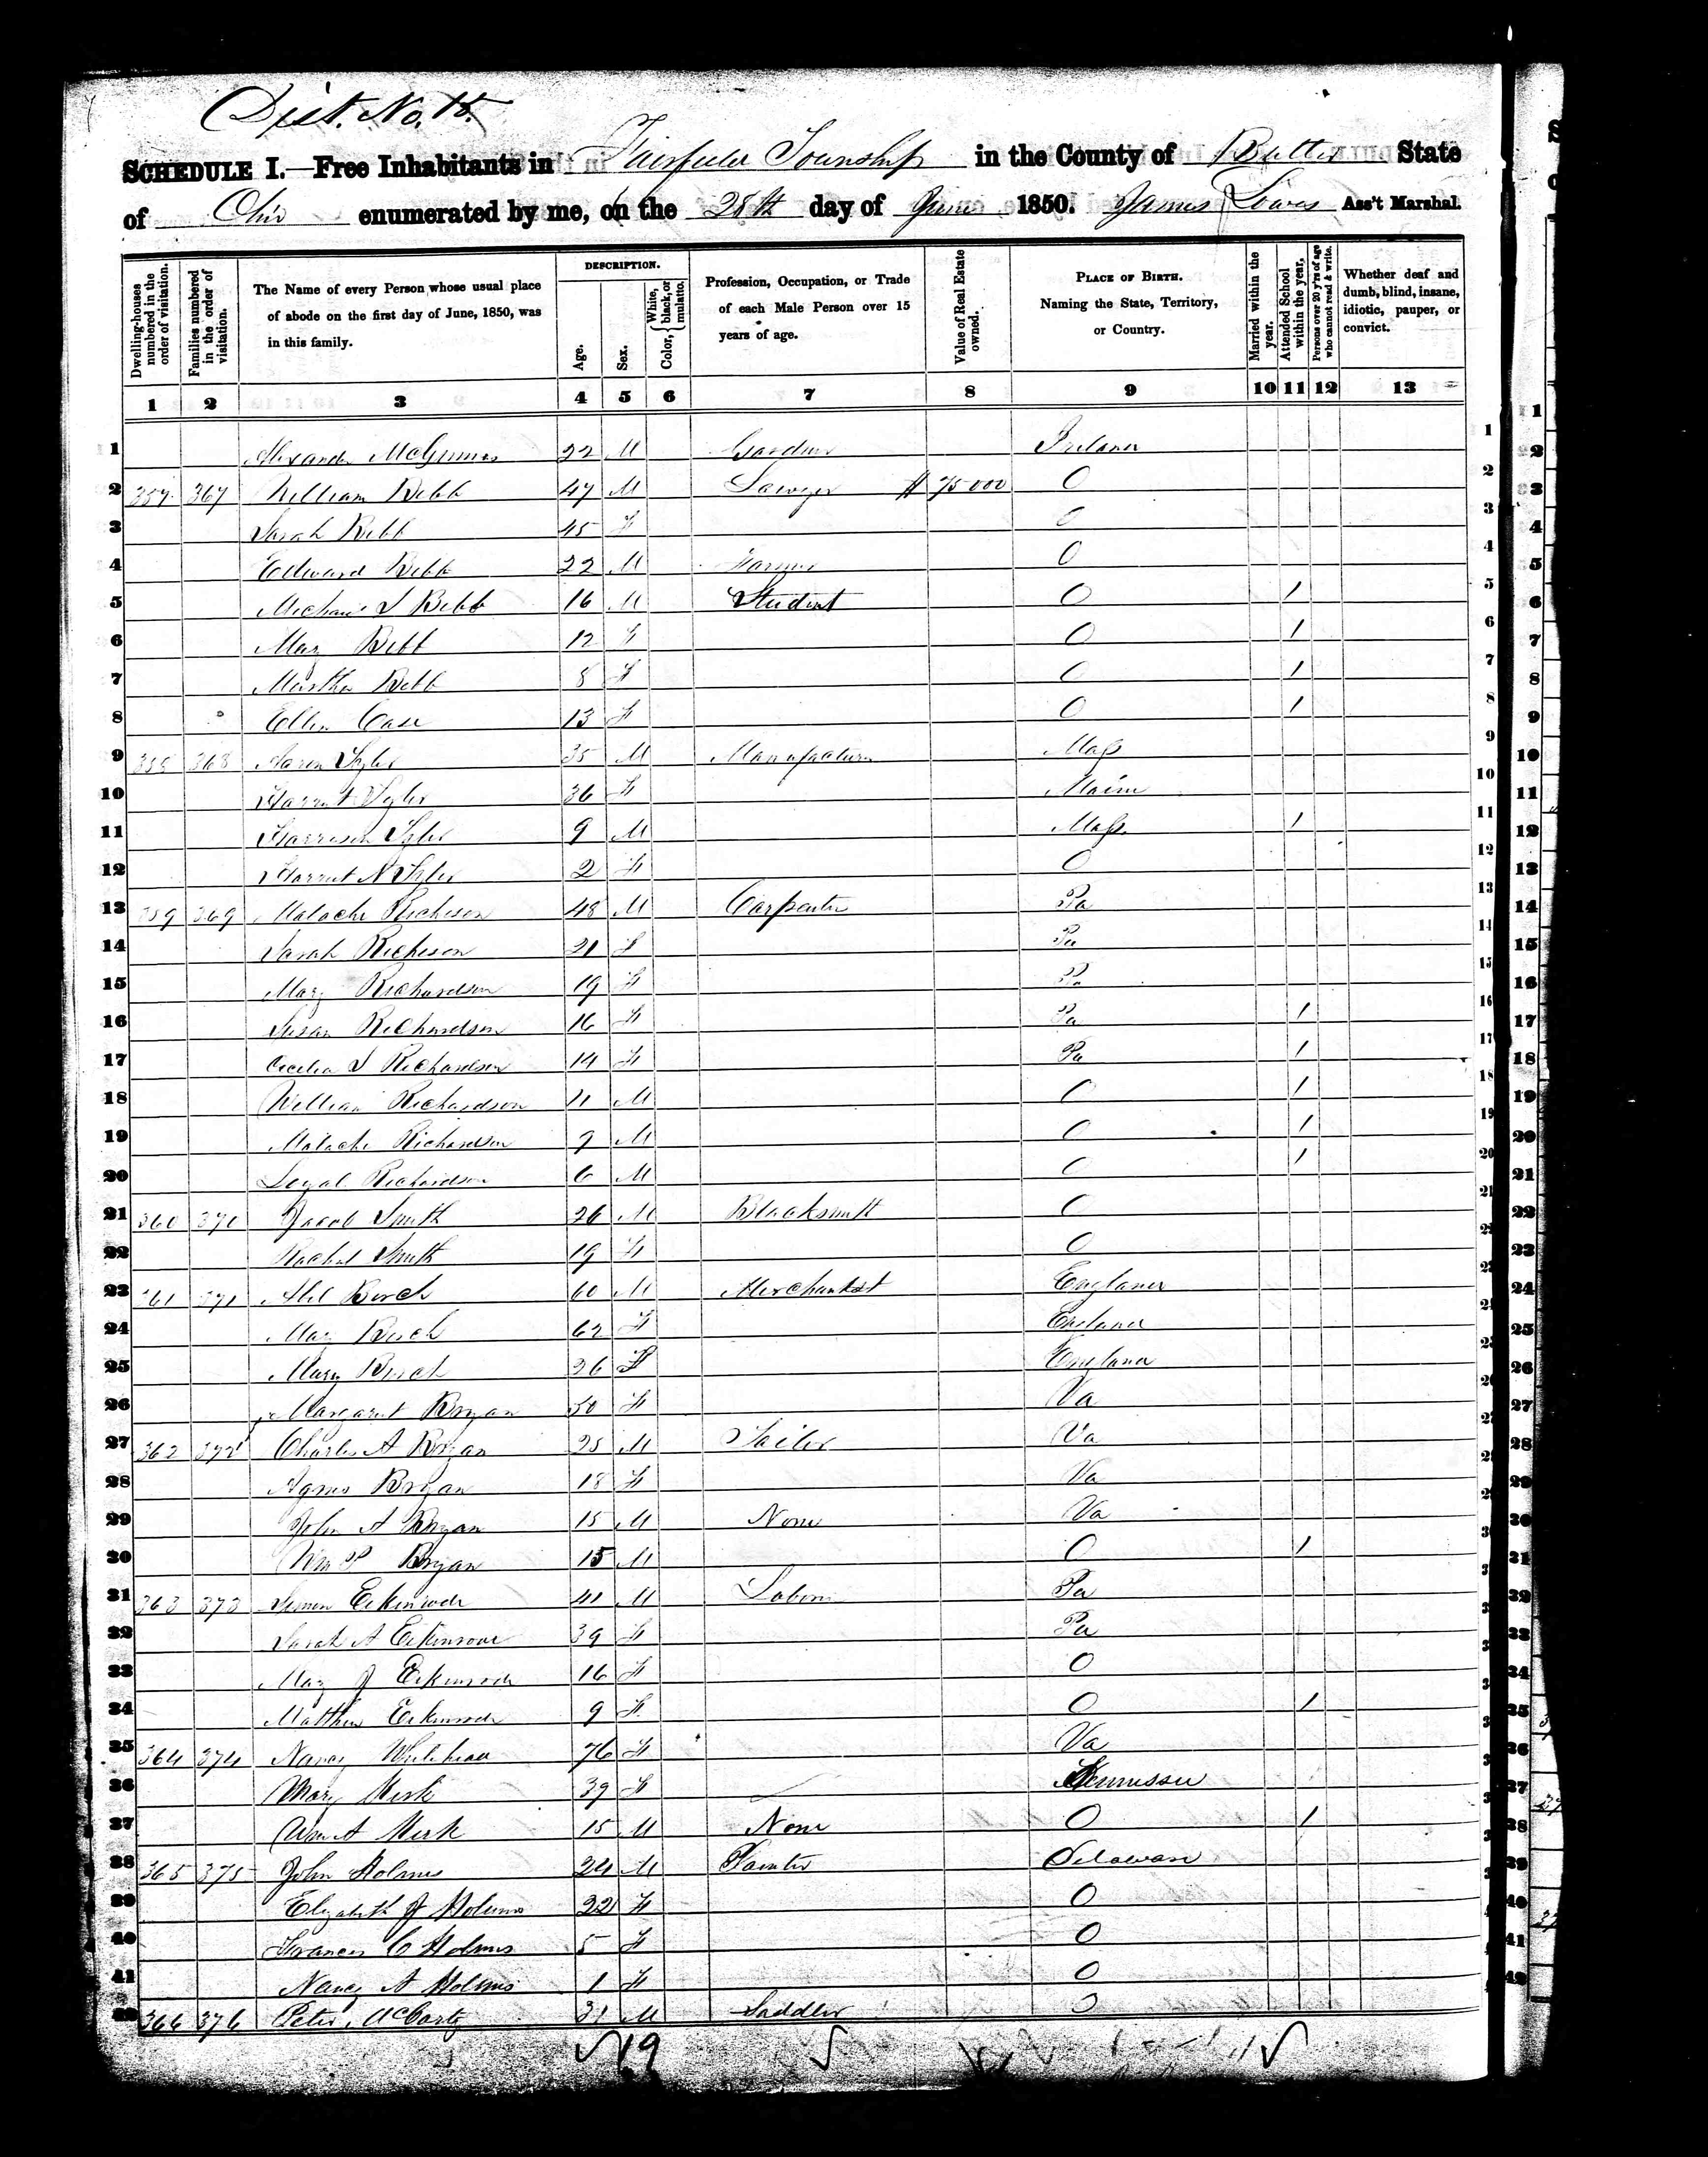 Dist. No. 15.
SCHEDULE I.—Free Inhabitants in Fairfield Township in the County of Butler State
of Ohio enumerated by me, on the 28th day of June 1850. James Lowes Ass't Marshal.
Dwelling-houses numbered in the order of visitation.
Families numbered in the order of visitation.
The Name of every Person whose usual place of abode on the first day of June, 1850, was in this family.
DESCRIPTION.
Age.
Sex.
Color, { White, black, or mulatto.
Profession, Occupation, or Trade of each Male Person over 15 years of age.
Value of Real Estate owned.
PLACE OF BIRTH. Naming the State, Territory, or Country.
Married within the year.
Attended School within the year.
Persons over 20 y'rs of age who cannot read & write.
Whether deaf and dumb, blind, insane, idiotic, pauper, or convict.
1 2 3 4 5 6 7 8 9 10 11 12 13
1 Alexander McGinnis 22 M Gardner Ireland 1
2 357 367 William Bebb 47 M Lawyer $ 75000 O 2
3 Sarah Bebb 45 F O 3
4 Edward Bebb 22 M Farmer O 4
5 Michael S Bebb 16 M Student O 1 5
6 Mary Bebb 12 F O 1 6
7 Martha Bebb 8 F O 1 7
8 Ellen Case 13 F O 1 8
9 358 368 Aaron Tyler 35 M Manufacturer Mass 9
10 Harriet Tyler 36 F Maine 10
11 Harrison Tyler 9 M Mass 1 11
12 Harriet N Tyler 2 F O 12
13 359 369 Malachi Richeson 48 M Carpenter Pa 13
14 Sarah Richeson 21 F Pa 14
15 Mary Richardson 19 F Pa 15
16 Susan Richardson 16 F Pa 1 16
17 Cecelia S Richardson 14 F Pa 1 17
18 William Richardson 11 M O 1 18
19 Malachi Richardson 9 M O 1 19
20 Richardson 6 M O 1 20
21 360 370 Jacob Smith 26 M Blacksmith O 21
22 Rachel Smith 19 F O 22
23 361 371 Abel Birch 60 M Merchant England
24 Mary Birch 62 F England
25 Mary Birch 26 F England
26 Margaret Bryan 50 F Va
27 362 372 Charles A Bryan 25 M Tailor Va
28 Agnes Bryan 18 F Va
29 John A Bryan 15 M None Va
30 Wm P Bryan 15 M O 1
31 363 373 Simon Eikenrode 41 M Labor Pa
32 Sarah A Eikenrode 39 F Pa
33 Mary J Eikenrode 16 F O
34 Matthew Eikenrode 9 F O 1
35 364 374 Nancy Whitehead 76 F Va
36 Mary 39 F Tennessee
37 15 M None O 1
38 365 375 John Holmes 24 M Painter Delaware
39 Elizabeth J Holmes 22 F O
40 Frances C Holmes 5 F O
41 Nancy A Holmes 1 F O
366 376 Peter McCarty 31 M Saddler O
19